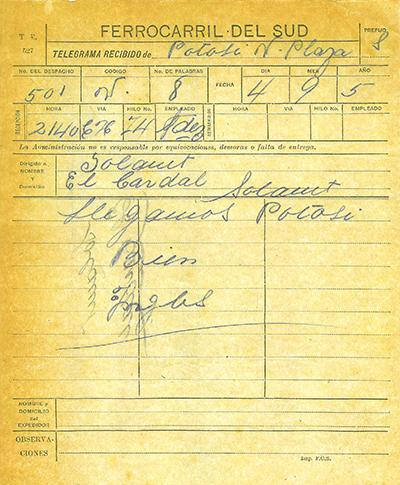 FERROCARRIL·DEL SUD
PREFIJO
8
T R.
527
TELEGRAMA RECIBIDO de Potosi N. Plaza
No. DEL DESPACHO CODIGO No. DE PALABRAS FECHA DIA MES AÑO
501 N. 8 4 9 5
RECEPCION HORA VIA HILO No. EMPLEADO HORA VIA HILO No. EMPLEADO
2140 676 74
La Administración no es responsable por equivocaciones, demoras o falta de entrega.
Dirigido a
NOMBRE
Y
Domicilio
Solanet
El Cardal Solanet
Llegamos Potosi
Bien
NOMBRE y
DOMICILIO
del
EXPEDIDOR
OBSERVA-
CIONES
Imp. F.C.S.